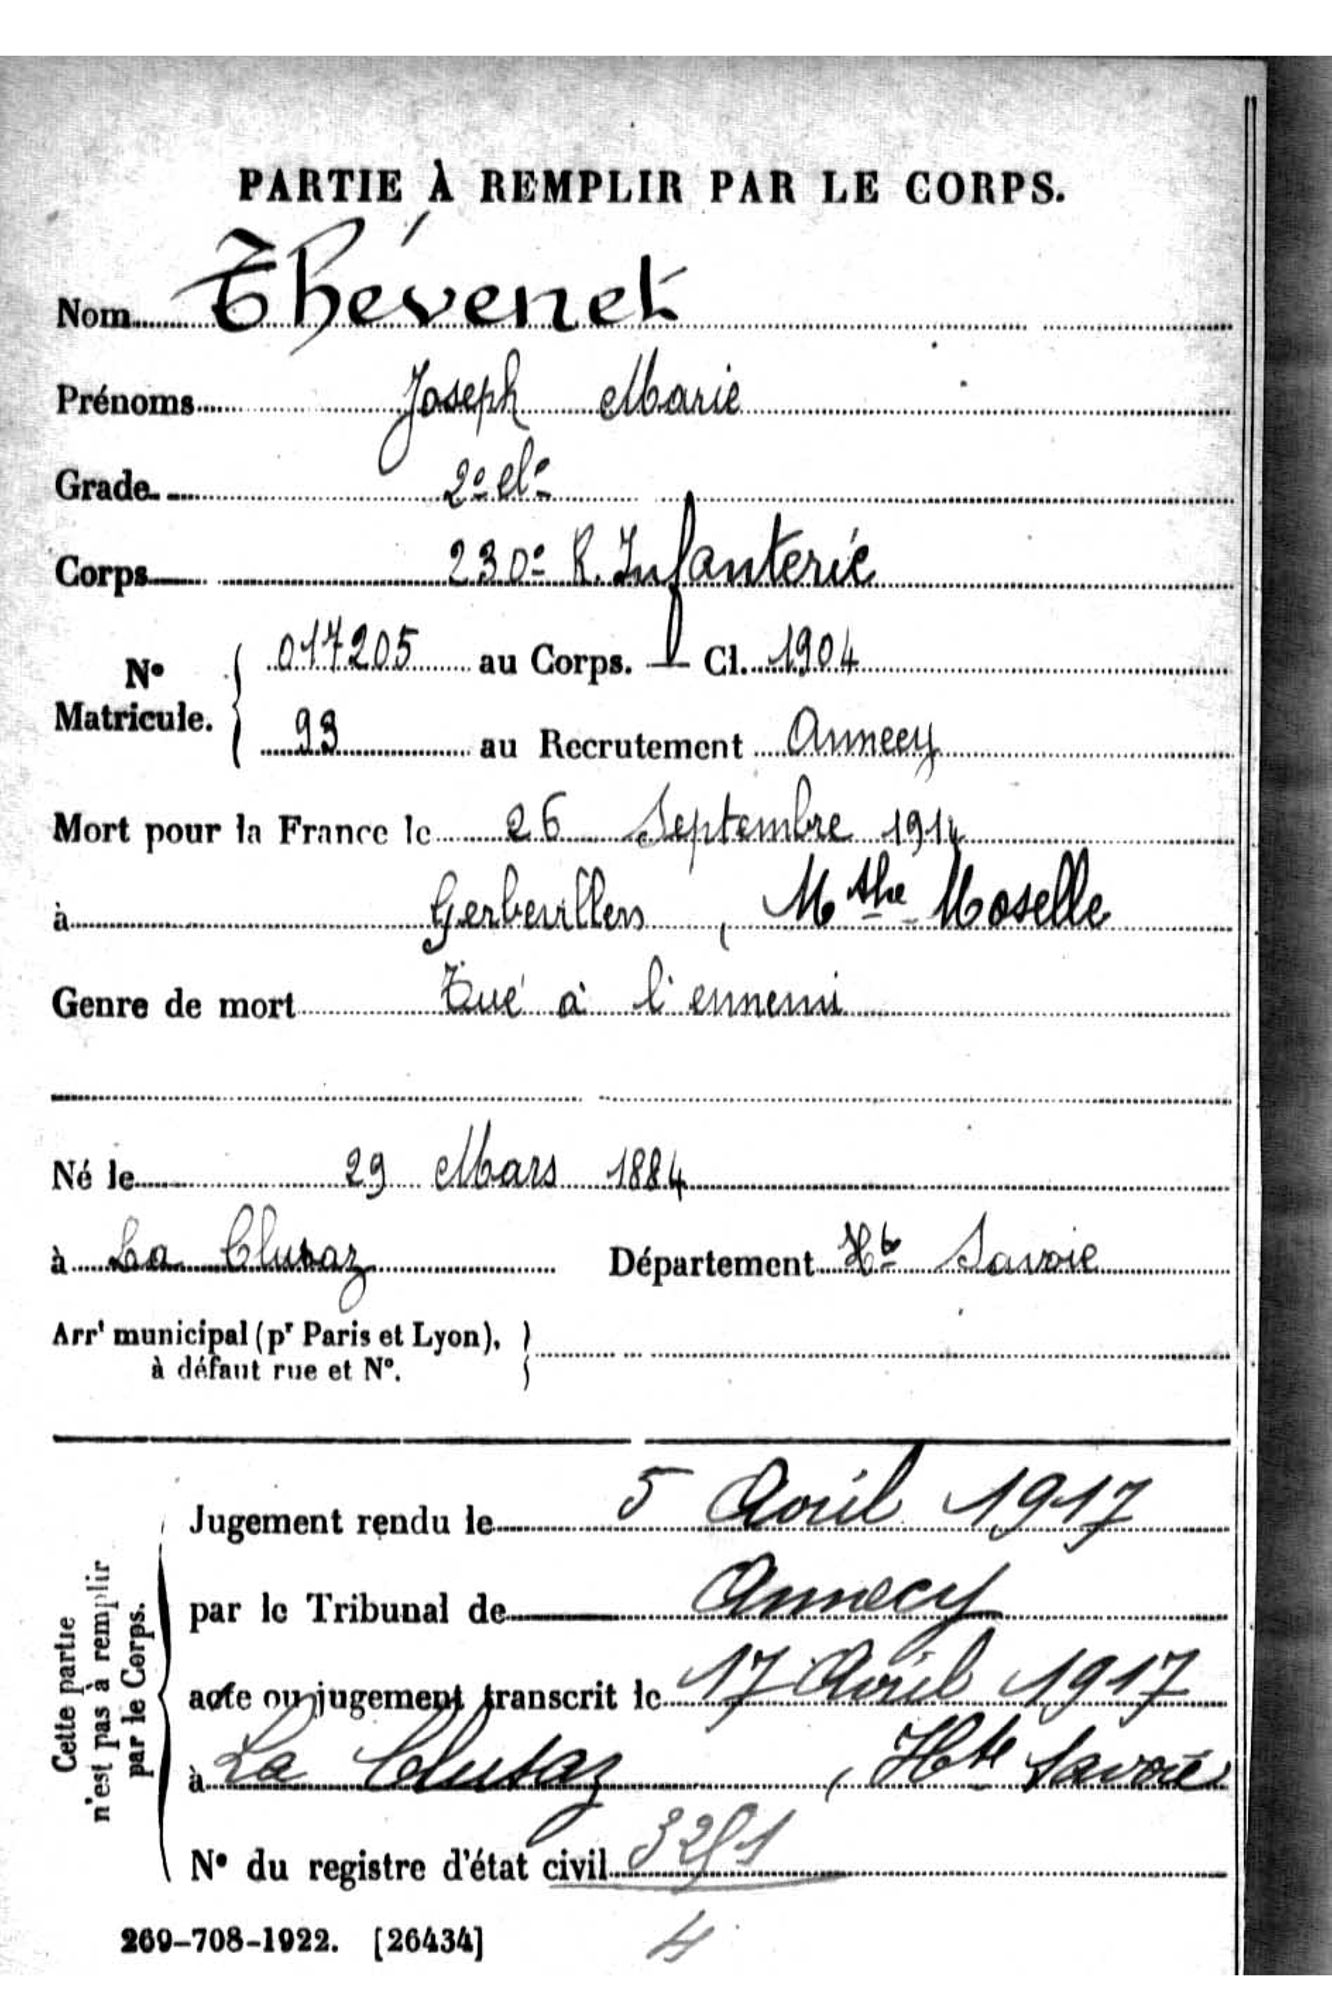 PARTIE À REMPLIR PAR LE CORPS.
Nom Thévenet
Prénoms Joseph Marie
Grade 2e cle
Corps 230e R. Infanterie
No Matricule. 017205 au Corps. Cl. 1904
93 au Recrutement Annecy
Mort pour la France le 26 Septembre 1914
à Gerbevillers, Mthe Moselle
Genre de mort Tué à l'ennemi
Né le 29 Mars 1884
à La Clusaz Département Hte Savoie
Arrt municipal (pr Paris et Lyon),
à défaut rue et No.
Cette partie
n'est pas à remplir
par le Corps.
Jugement rendu le 5 Avril 1917
par le Tribunal de Annecy
acte ou jugement transcrit le 17 Avril 1917
à La Clusaz, Hte Savoie
No du registre d'état civil
269-708-1922. [26434]
4